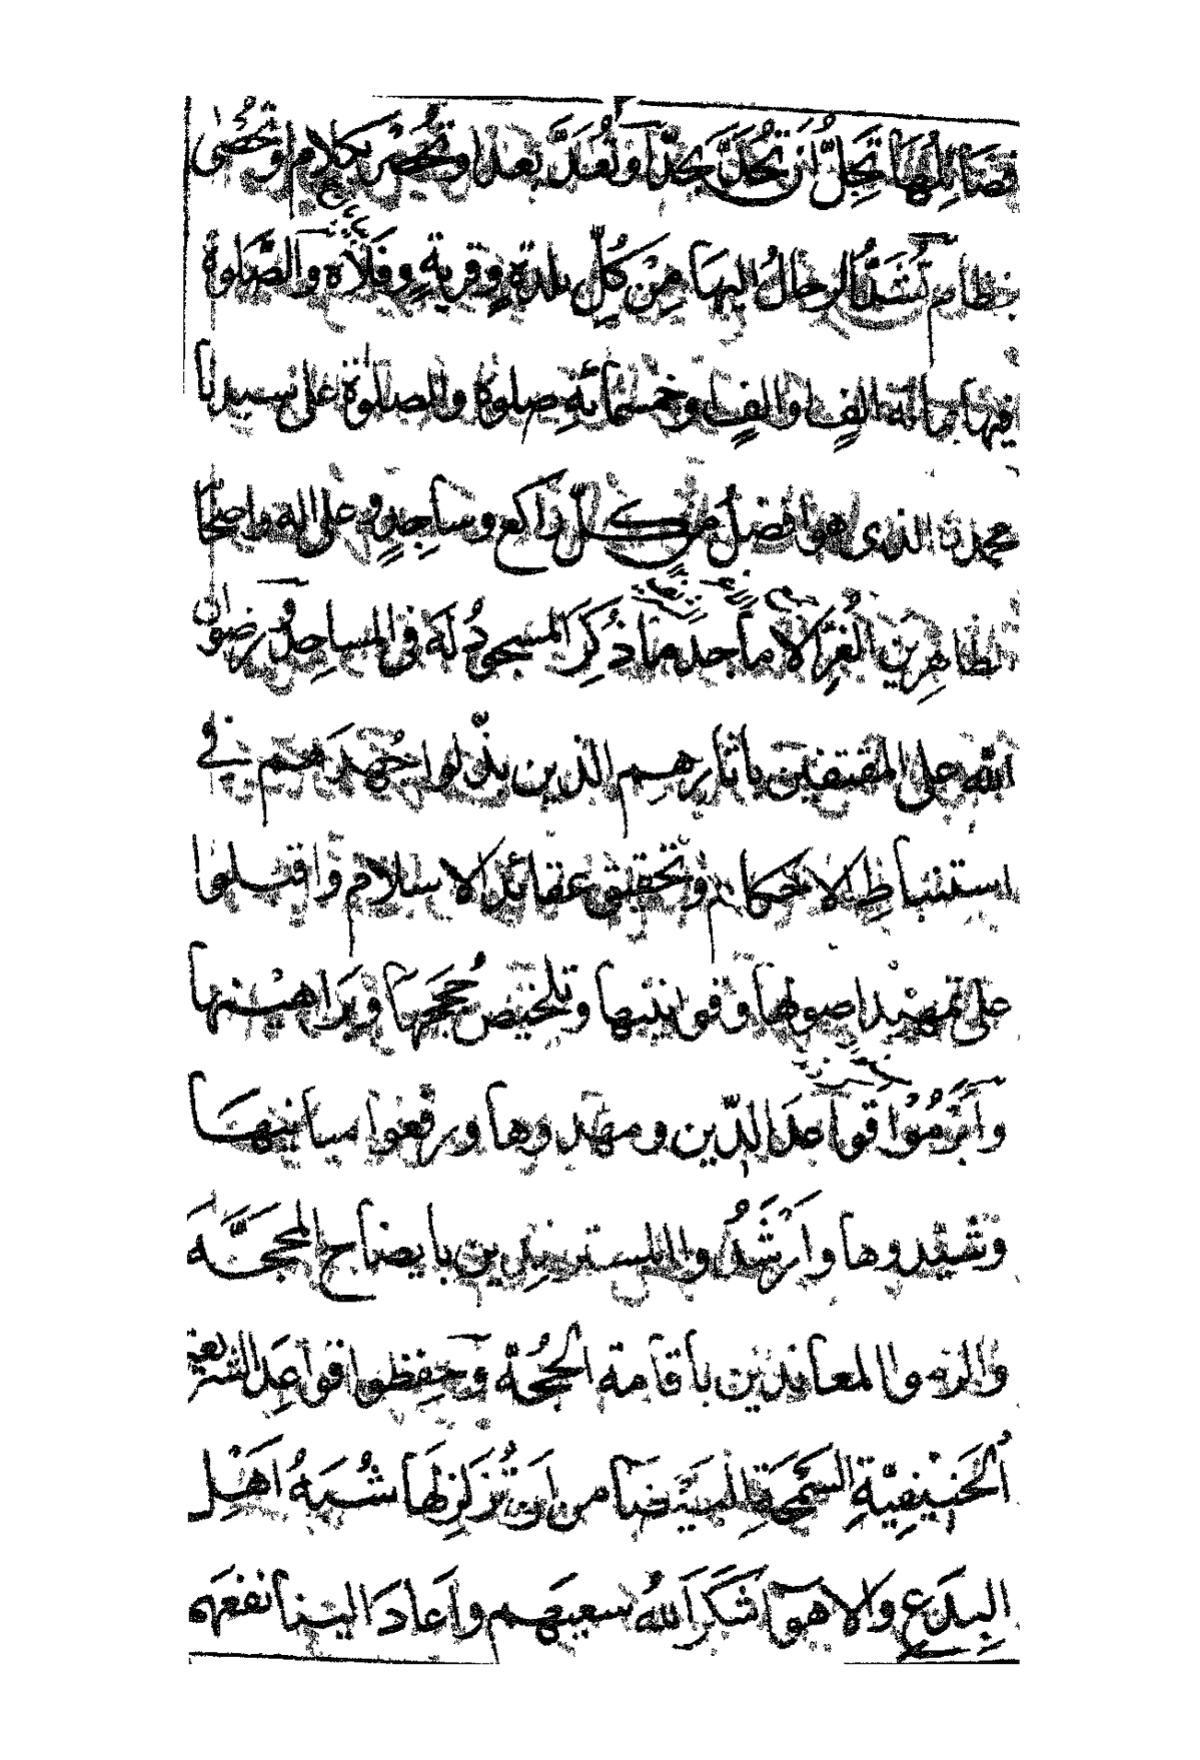 فضائلها تَجِلُّ أن تُحَدَّ بحدّ أو تُعَدَّ بعدد أو تُحْصَر بكلام أو تُحْصٰى
بنظام تُشَدُّ الرحالُ اليها مِنْ كُلِّ بلدةٍ وقريةٍ وفلاة والصَّلوة
فيها بمائة الفٍ والفٍ وخمسمائةِ صلوة والصلوة على سيدنا
محمد الذى هو افضلُ من كل راكع وساجدٍ وعلى اله واصحابه
الطاهرين الغُرّ الاماجد ما ذُكِرَ المسجودُ لَه فى المساجد ورضوان
الله على المقتفين باثارهم الذين بذّلوا جُهدَهم فے
استنباطِ الاحكام وتحقيق عقائد الاسلام واقبلوا
على تمهيد اصولها وقوانينها وتلخيص حُجَجِها وبَراهينها
وأَبْرَمُوْا قواعدَ الدّين ومهدوها ورفعوا مبانيها
وشيّدوها وأَرْشَدُوا المسترشدين بايضاح المحجَّة
والزموا المعاندين باقامة الحُجّة وحفِظوا قواعِدَ الشريعة
الحَنيْفِيَّةِ السَّمْحَةِ البَيْضَاء من ان تُزَلْزِلَها شُبَهُ اَهْلِ
البِدَع والاهواء شَكَرَ اللهُ سعيَهم واَعادَ الينا نفعَه